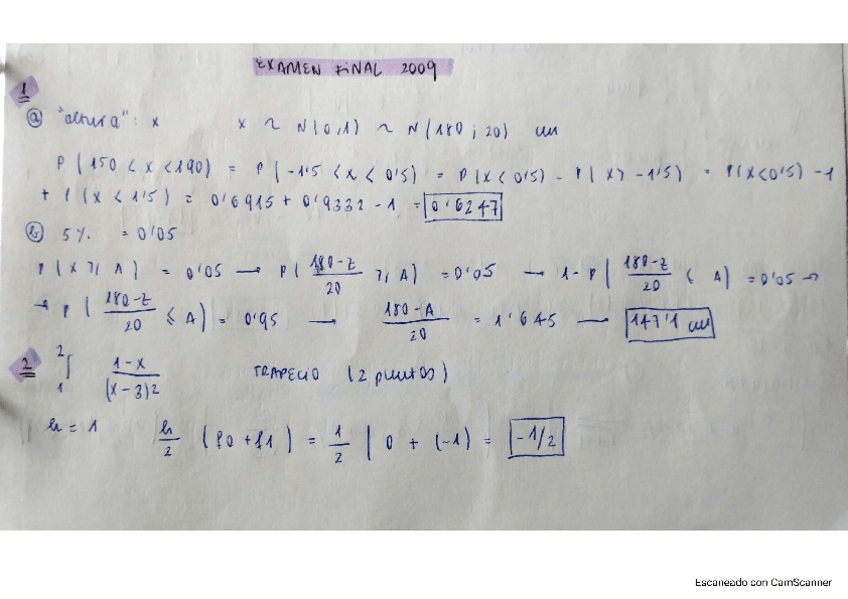 EXAMEN FINAL 2009
1
a) "altura": x    x ~ N(0,1) ~ N(180; 20) cm
P(150 < x < 190) = P(-1'5 < x < 0'5) = P(x < 0'5) - P(x > -1'5) = P(x < 0'5) - 1
+ P(x < 1'5) = 0'6915 + 0'9332 - 1 = 0'6247
b) 5% = 0'05
P(x ≥ A) = 0'05 → P(180-z/20 ≥ A) = 0'05 → 1 - P(180-z/20 < A) = 0'05 →
→ P(180-z/20 ≤ A) = 0'95 → 180-A/20 = 1'645 → 147'1 cm
2 ∫₁² 1-x/(x-3)2 TRAPECIO (2 puntos)
h = 1    h/2 (f0 + f1) = 1/2 (0 + (-1) = -1/2
Escaneado con CamScanner